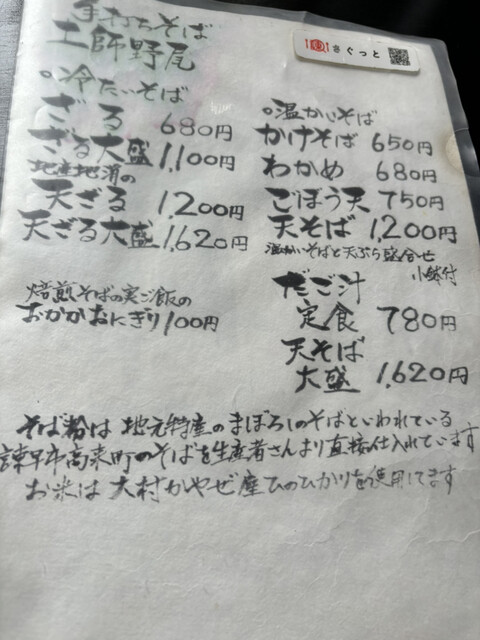 手打ちそば
土師野尾
さぐっと
○冷たいそば
ざる 680円
ざる大盛 1,100円
地産地消の
天ざる 1,200円
天ざる大盛 1,620円
焙煎そばの実ご飯の
おかかおにぎり 100円
○温かいそば
かけそば 650円
わかめ 680円
ごぼう天 750円
天そば 1,200円
温かいそばと天ぷら盛合せ
小鉢付
だご汁
定食 780円
天そば
大盛 1,620円
そば粉は地元特産のまぼろしのそばといわれている
諫早市高来町のそばを生産者さんより直接仕入れています
お米は大村かやぜ産ひのひかりを使用してます